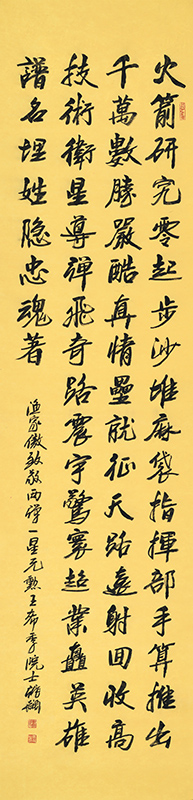 火箭研究零起步沙堆麻袋指揮部手算推出
千萬數勝嚴酷真情壘就征天路遠射回收高
技術衛星導彈飛奇路震宇驚寰超業矗英雄
譜名埋姓隐忠魂著
渔家傲致敬两弹一星元勲王希季院士